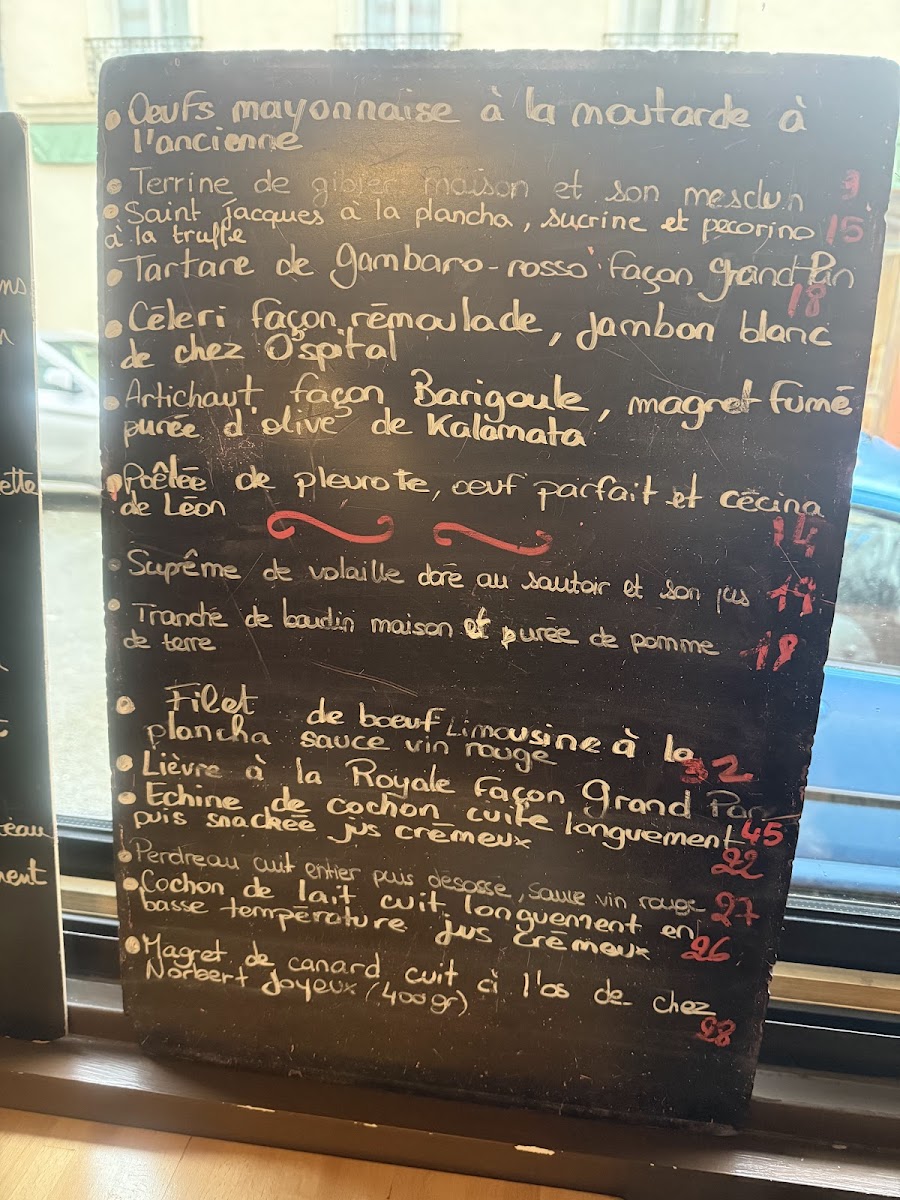 • Oeufs mayonnaise à la moutarde à
l'ancienne
• Terrine de gibier maison et son mesclun 9
• Saint jacques à la plancha, sucrine et pecorino 15
à la truffe
• Tartare de gambaro-rosso façon grand Pan
18
• Céleri façon rémoulade, jambon blanc
de chez Ospital
• Artichaut façon Barigoule, magret fumé
purée d'olive de Kalamata
• Poêlée de pleurote, oeuf parfait et cécina
de Léon
14
• Suprême de volaille doré au sautoir et son jus
• Tranche de boudin maison et purée de pomme
de terre
• Filet de boeuf Limousine à la
plancha sauce vin rouge 32
• Lièvre à la Royale façon Grand Pan
• Echine de cochon cuite longuement 45
puis snackée jus crémeux
22
• Perdreau cuit entier puis désossé, sauce vin rouge 27
• Cochon de lait cuit longuement en
basse température jus crémeux 26
• Magret de canard cuit à l'os de chez
Norbert Joyeux (400gr)
28
ms
ette
teau
ment